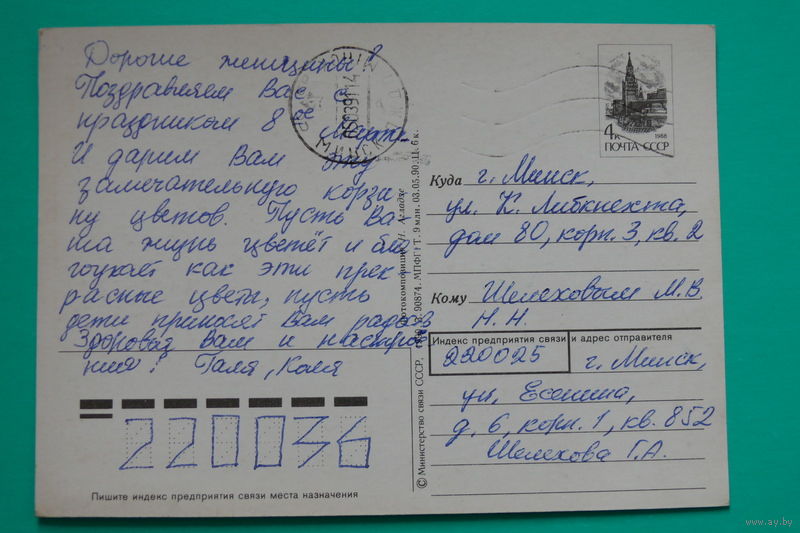 Дорогие женщины!
Поздравляем Вас с
праздником 8 Марта.
И дарим Вам эту
замечательную корзи
ну цветов. Пусть Ва-
ша жизнь цветёт и бла
гоухает как эти прек
расные цветы, пусть
дети приносят Вам радость
Здоровья Вам и настрое
ния! Галя, Коля
220036
Пишите индекс предприятия связи места назначения
МИНСК
4к
1988
ПОЧТА СССР
Куда г. Минск,
ул. К. Либкнехта,
дом 80, корп. 3, кв. 2
Кому Шелеховым М.В.
Н.Н.
Индекс предприятия связи и адрес отправителя
220025 г. Минск,
ул. Есенина,
д. 6, корп. 1, кв. 852
Шелехова Г.А.
© Министерство связи СССР, 90874. МПФГ. Т. 9 млн. 03.05.90. Ц. 6 к.
www.ay.by